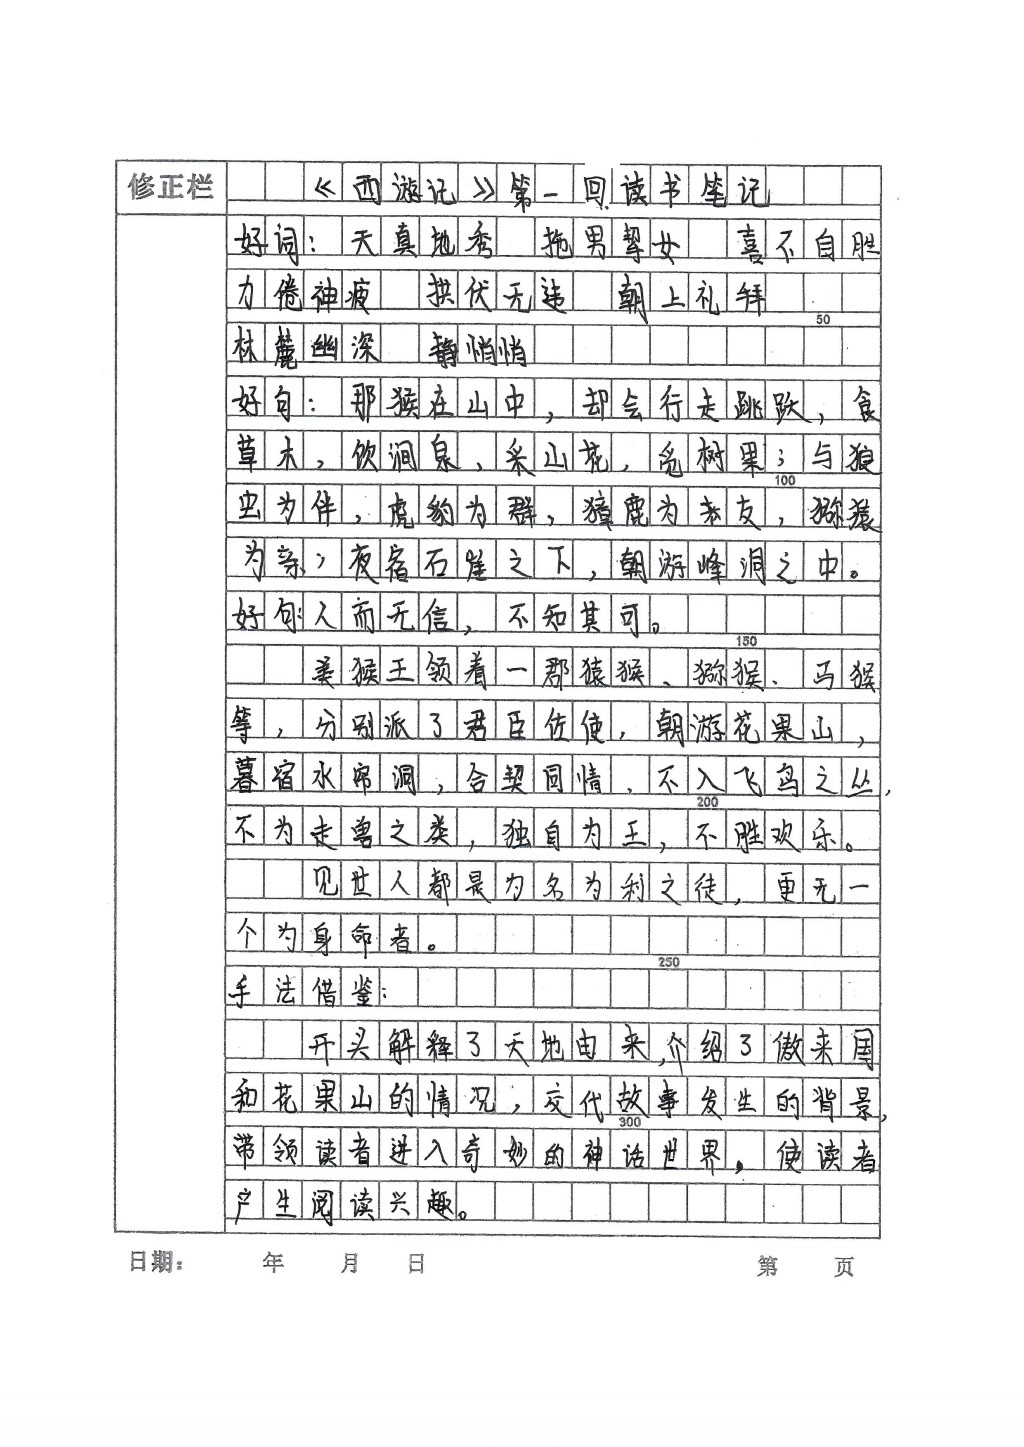 修正栏
《西游记》第一回读书笔记
好词：天真地秀 拖男挈女 喜不自胜
力倦神疲 拱伏无违 朝上礼拜
50
林麓幽深 静悄悄
好句：那猴在山中，却会行走跳跃，食
草木，饮涧泉，采山花，觅树果；与狼
100
虫为伴，虎豹为群，獐鹿为友，猕猿
为亲；夜宿石崖之下，朝游峰洞之中。
好句：人而无信，不知其可。
150
美猴王领着一群猿猴、猕猴、马猴
等，分别派了君臣佐使，朝游花果山，
暮宿水帘洞，合契同情，不入飞鸟之丛，
200
不为走兽之类，独自为王，不胜欢乐。
见世人都是为名为利之徒，更无一
个为身命者。
250
手法借鉴：
开头解释了天地由来，介绍了傲来国
和花果山的情况，交代故事发生的背景，
300
带领读者进入奇妙的神话世界，使读者
产生阅读兴趣。
日期： 年 月 日 第 页